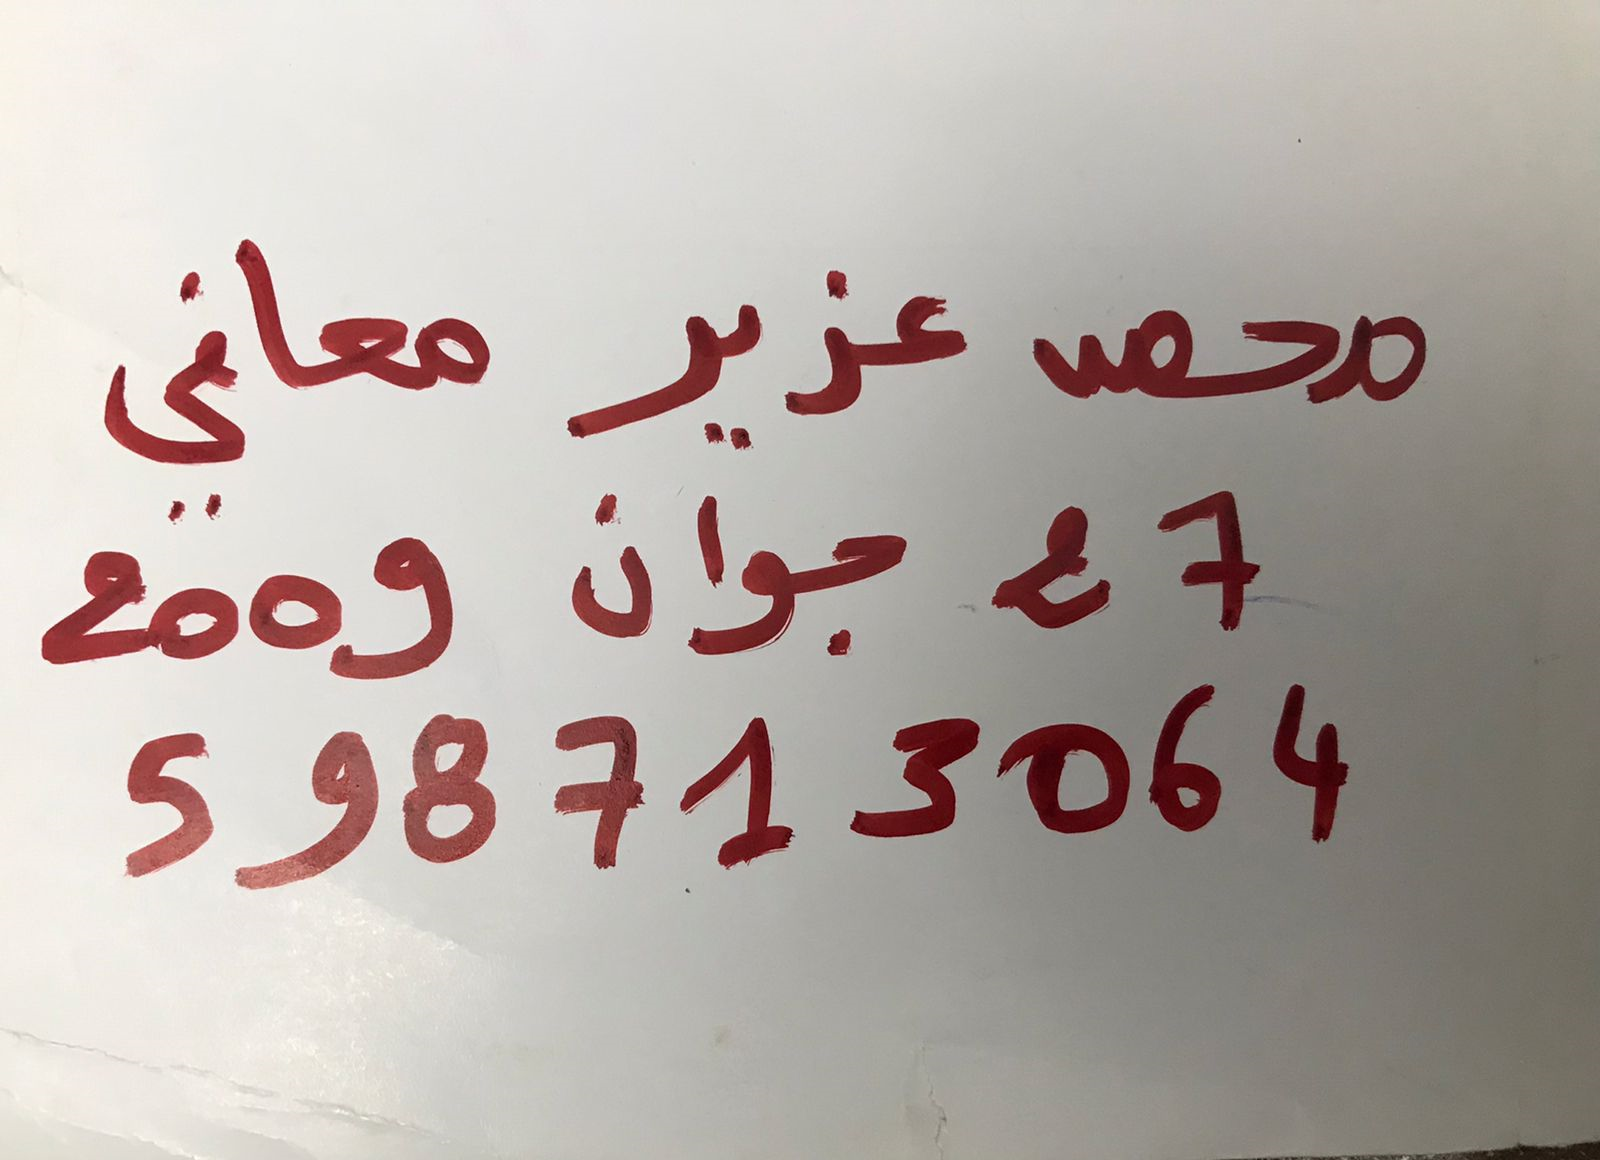 محمد عزير معاني
27 جوان 2009
5 9 8 7 1 3 0 6 4